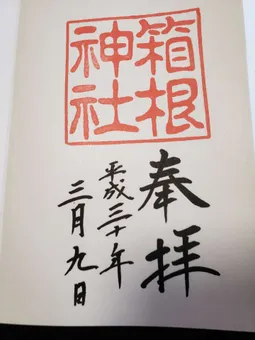 箱根
神社
奉拝
平成三十年
三月九日